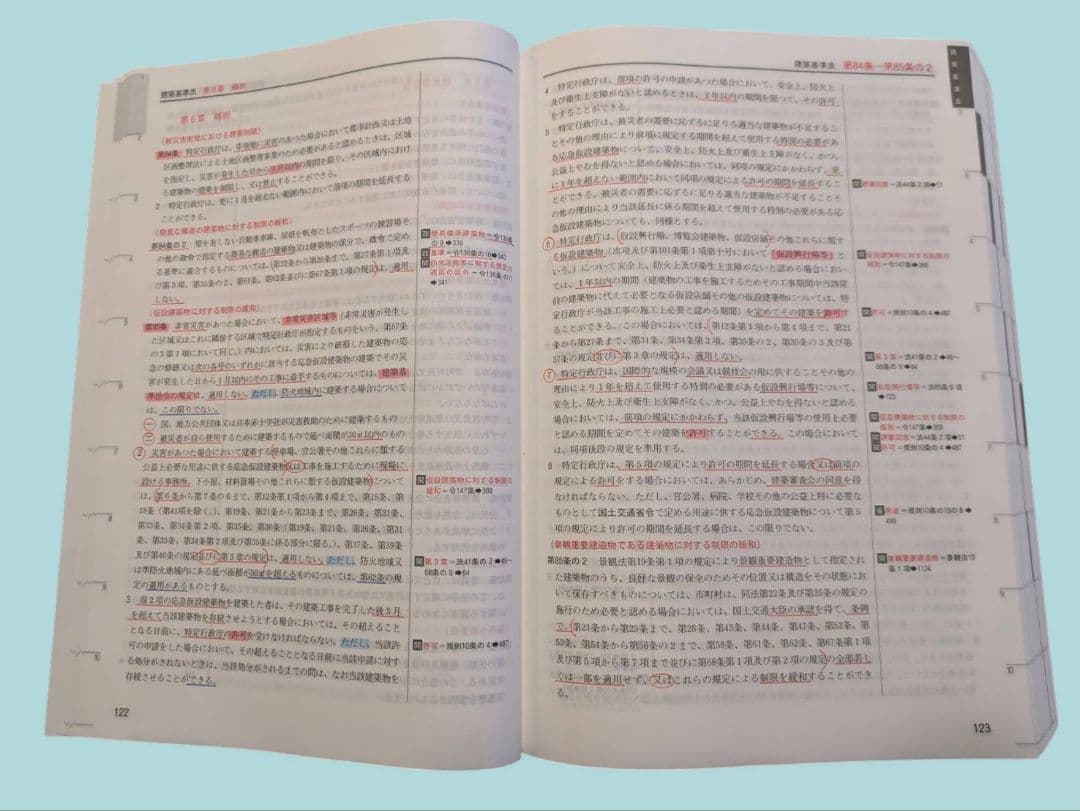 建築基準法 第6章 雑則
第6章 雑則
(被災市街地における建築制限)
第84条 特定行政庁は、市街地に災害のあつた場合において都市計画又は土地
区画整理法による土地区画整理事業のため必要があると認めるときは、区域
を指定し、災害が発生した日から1月以内の期間を限り、その区域内におけ
る建築物の建築を制限し、又は禁止することができる。
2 特定行政庁は、更に1月を超えない範囲内において前項の期間を延長する
ことができる。
(簡易な構造の建築物に対する制限の緩和)
第84条の2 壁を有しない自動車車庫、屋根を帆布としたスポーツの練習場そ
の他の政令で指定する簡易な構造の建築物又は建築物の部分で、政令で定め
る基準に適合するものについては、第22条から第26条まで、第27条第1項及
び第3項、第35条の2、第61条、第62条並びに第67条第1項の規定は、適用
しない。
(仮設建築物に対する制限の緩和)
第85条 非常災害があつた場合において、非常災害区域等(非常災害が発生し
た区域又はこれに隣接する区域で特定行政庁が指定するものをいう。第87条
の3第1項において同じ。)内においては、災害により破損した建築物の応
急の修繕又は次の各号のいずれかに該当する応急仮設建築物の建築でその災
害が発生した日から1月以内にその工事に着手するものについては、建築基
準法令の規定は、適用しない。ただし、防火地域内に建築する場合について
は、この限りでない。
一 国、地方公共団体又は日本赤十字社が災害救助のために建築するもの
二 被災者が自ら使用するために建築するもので延べ面積が30㎡以内のもの
2 災害があつた場合において建築する停車場、官公署その他これらに類する
公益上必要な用途に供する応急仮設建築物又は工事を施工するために現場に
設ける事務所、下小屋、材料置場その他これらに類する仮設建築物について
は、第6条から第7条の6まで、第12条第1項から第4項まで、第15条、第
18条(第41項を除く。)、第19条、第21条から第23条まで、第26条、第31条、
第33条、第34条第2項、第35条、第36条(第19条、第21条、第26条、第31
条、第33条、第34条第2項及び第35条に係る部分に限る。)、第37条、第39条
及び第40条の規定並びに第3章の規定は、適用しない。ただし、防火地域又
は準防火地域内にある延べ面積が50㎡を超えるものについては、第62条の規
定の適用があるものとする。
3 前2項の応急仮設建築物を建築した者は、その建築工事を完了した後3月
を超えて当該建築物を存続させようとする場合においては、その超えること
となる日前に、特定行政庁の許可を受けなければならない。ただし、当該許
可の申請をした場合において、その超えることとなる日前に当該申請に対す
る処分がされないときは、当該処分がされるまでの間は、なお当該建築物を
存続させることができる。
簡易構造建築物=令136条
の9➡339
基準=令136条の10➡340
防火区画等に関する規定の
適用の除外=令136条の11
➡341
仮設建築物に対する制限の
緩和=令147条➡368
第3章=法41条の2➡49~
68条の9➡84
許可=規則10条の4➡487
122
建築基準法 第84条−第85条の2
建築基準法
4 特定行政庁は、前項の許可の申請があつた場合において、安全上、防火上
及び衛生上支障がないと認めるときは、2年以内の期間を限つて、その許可
をすることができる。
5 特定行政庁は、被災者の需要に応ずるに足りる適当な建築物が不足するこ
とその他の理由により前項に規定する期間を超えて使用する特別の必要があ
る応急仮設建築物について、安全上、防火上及び衛生上支障がなく、かつ、
公益上やむを得ないと認める場合においては、同項の規定にかかわらず、更
に1年を超えない範囲内において同項の規定による許可の期間を延長するこ
とができる。被災者の需要に応ずるに足りる適当な建築物が不足することそ
の他の理由により当該延長に係る期間を超えて使用する特別の必要がある応
急仮設建築物についても、同様とする。
6 特定行政庁は、仮設興行場、博覧会建築物、仮設店舗その他これらに類す
る仮設建築物(次項及び第101条第1項第十号において「仮設興行場等」と
いう。)について安全上、防火上及び衛生上支障がないと認める場合におい
ては、1年以内の期間(建築物の工事を施工するためその工事期間中当該従
前の建築物に代えて必要となる仮設店舗その他の仮設建築物については、特
定行政庁が当該工事の施工上必要と認める期間)を定めてその建築を許可す
ることができる。この場合においては、第12条第1項から第4項まで、第21
条から第27条まで、第31条、第34条第2項、第35条の2、第35条の3及び第
37条の規定並びに第3章の規定は、適用しない。
7 特定行政庁は、国際的な規模の会議又は競技会の用に供することその他の
理由により1年を超えて使用する特別の必要がある仮設興行場等について、
安全上、防火上及び衛生上支障がなく、かつ、公益上やむを得ないと認める
場合においては、前項の規定にかかわらず、当該仮設興行場等の使用上必要
と認める期間を定めてその建築を許可することができる。この場合において
は、同項後段の規定を準用する。
8 特定行政庁は、第5項の規定により許可の期間を延長する場合又は前項の
規定による許可をする場合においては、あらかじめ、建築審査会の同意を得
なければならない。ただし、官公署、病院、学校その他の公益上特に必要な
ものとして国土交通省令で定める用途に供する応急仮設建築物について第5
項の規定により許可の期間を延長する場合は、この限りでない。
(景観重要建造物である建築物に対する制限の緩和)
第85条の2 景観法第19条第1項の規定により景観重要建造物として指定され
た建築物のうち、良好な景観の保全のためその位置又は構造をその状態にお
いて保存すべきものについては、市町村は、同法第22条及び第25条の規定の
施行のため必要と認める場合においては、国土交通大臣の承認を得て、条例
で、第21条から第25条まで、第28条、第43条、第44条、第47条、第52条、第
53条、第54条から第56条の2まで、第58条、第61条、第62条、第67条第1項
及び第5項から第7項まで並びに第68条第1項及び第2項の規定の全部若し
くは一部を適用せず、又はこれらの規定による制限を緩和することができ
る。
建審同意=法44条2項➡51
仮設建築物に対する制限の
緩和=令147条➡368
許可=規則10条の4➡487
第3章=法41条の2➡49~
68条の9➡84
仮設興行場等=法85条6項
➡123
仮設建築物に対する制限の
緩和=令147条➡368
建審同意=法44条2項➡51
許可=規則10条の4➡487
用途=規則10条の15の8➡
499
景観重要建造物=景観法19
条1項➡1134
9
10
123